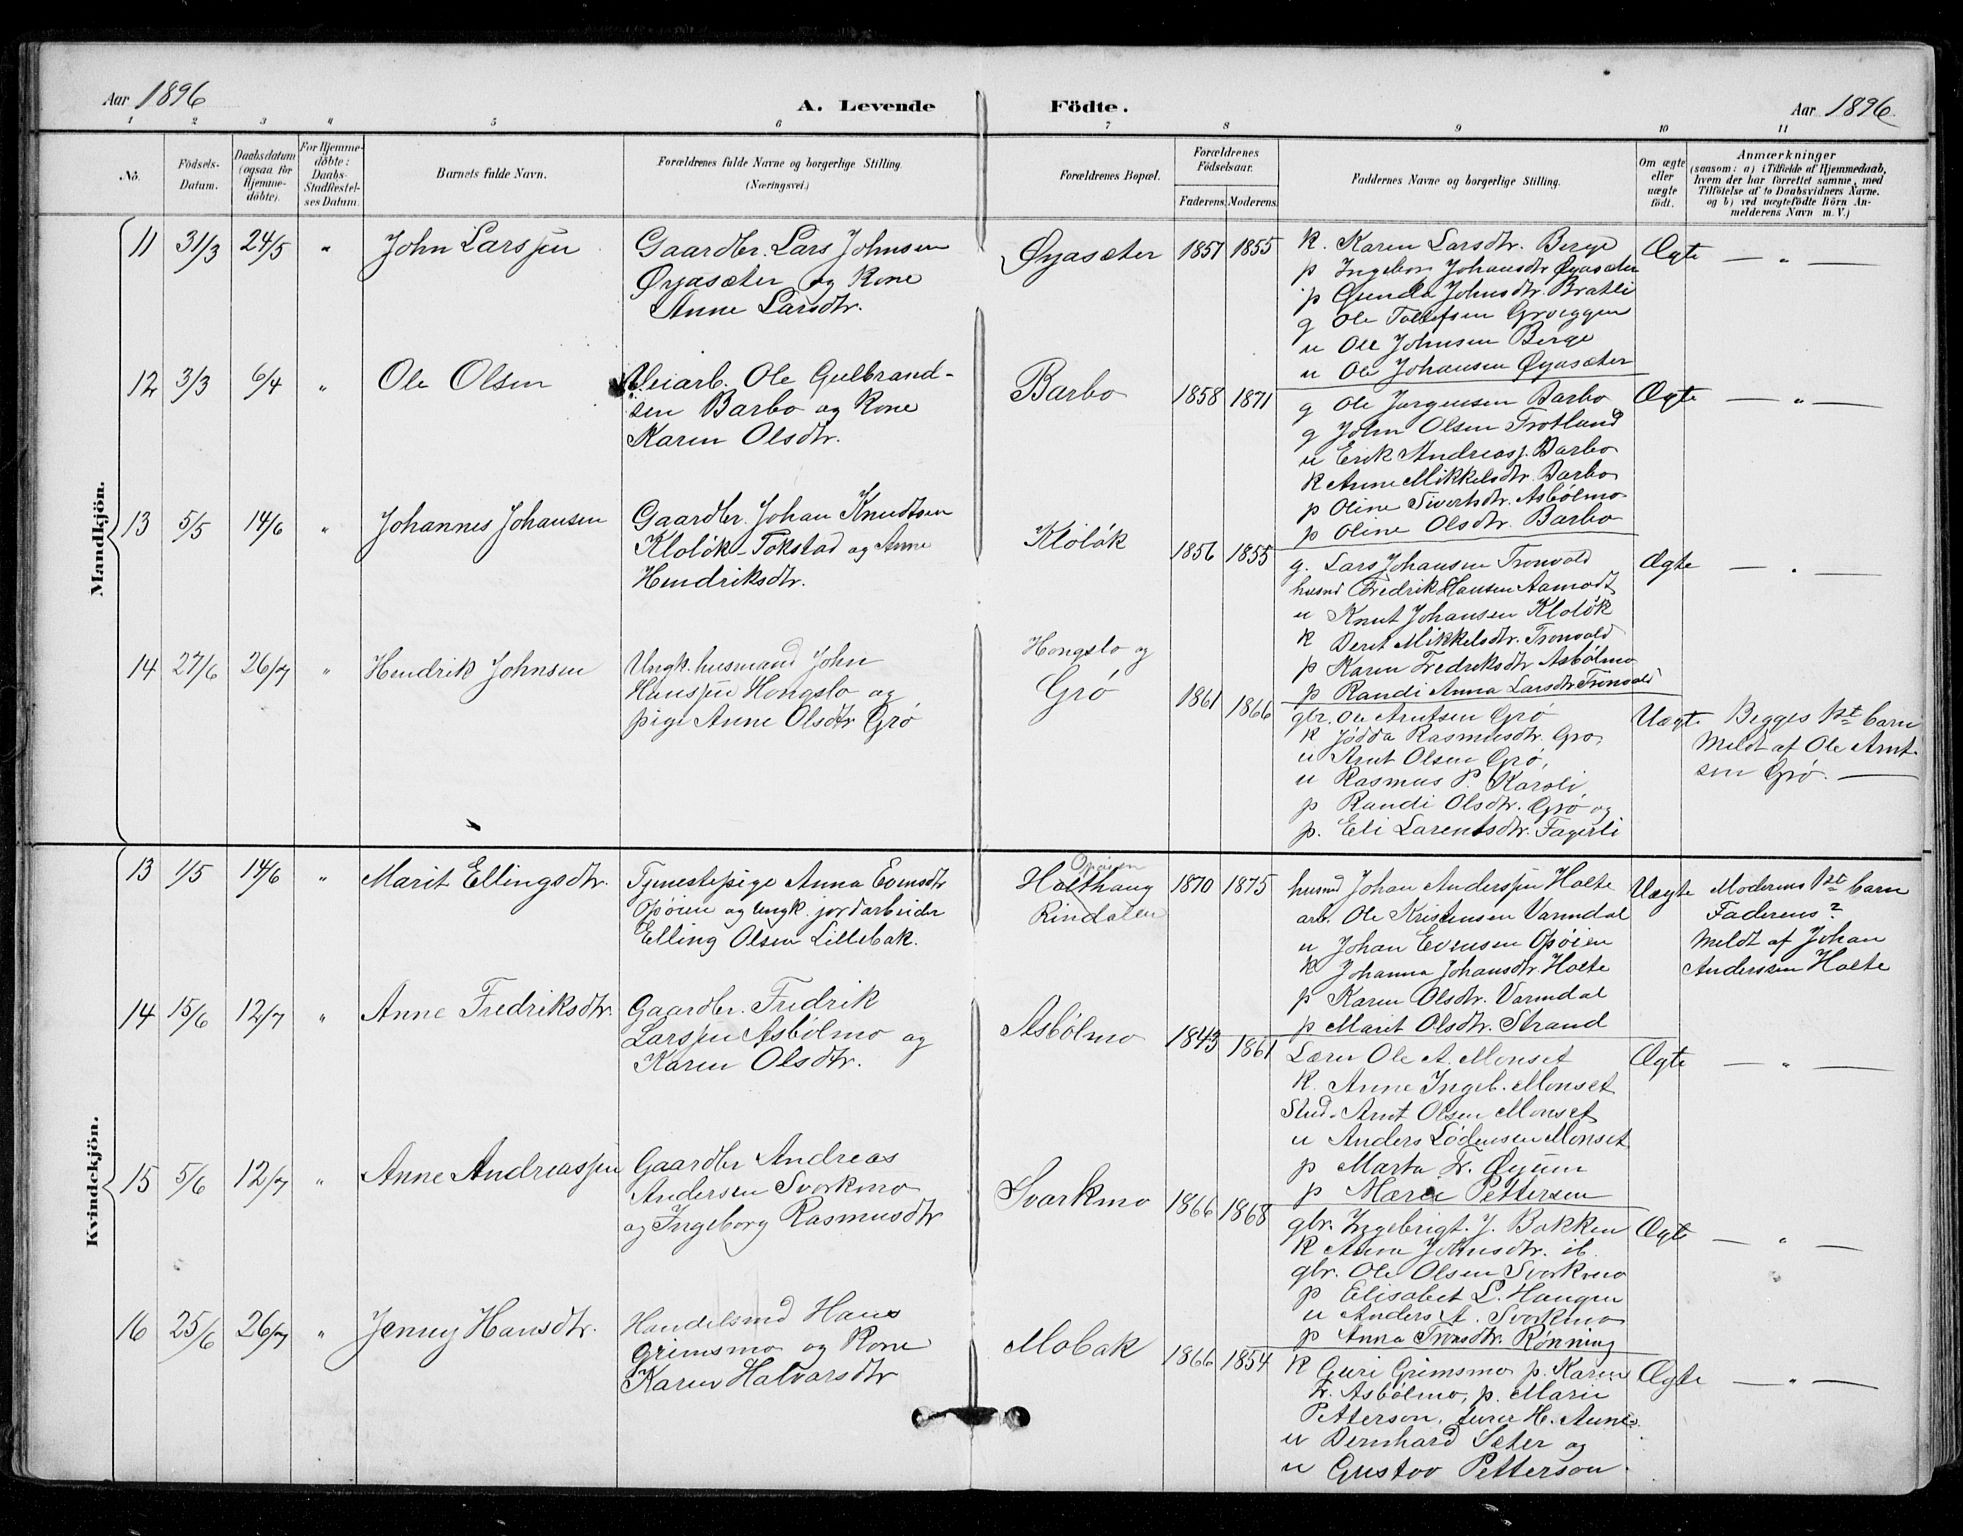 Aar 1896
A. Levende Födte.
Aar 1896
1 2 3 " 5 6 7 8 9 10 11
No.
Födsels-Datum.
Daabsdatum (ogsaa for Hjemmedöbte).
For Hjemmedöbte: Daabs-Stadfæstelses Datum.
Barnets fulde Navn.
Forældrenes fulde Navne og borgerlige Stilling.
(Næringsvei.)
Forældrenes Bopæl.
Forældrenes Födselsaar.
Faderens. Moderens.
Faddernes Navne og borgerlige Stilling.
Om ægte eller uægte födt.
Anmærkninger
(saasom: a) i Tilfælde af Hjemmedaab, hvem der har forrettet samme, med Tilföielse af to Daabsvidners Navne, og b) ved uægtefödte Börn Anmelderens Navn m. V.)
Mandkjön.
11 31/3 24/5 " John Larssen
Gaardbr. Lars Johnsen
Øyasæter og Kone
Anne Larsdtr.
Øyasæter 1851 1855
K. Karen Larsdtr. Berge
p Ingebor Johansdtr Øyasæter
p Gunda Johnsdtr. Bratli
g Ole Tollefsen Groeggen
u Ole Johnsen Berge
u Ole Johansen Øyasæter
Ægte — " —
12 3/3 6/4 " Ole Olsen
Veiarb. Ole Gulbrand-
sen Barbo og Kone
Karen Olsdtr.
Barbo 1858 1871
g Ole Jørgensen Barbo
g John Olsen Trotland
u Erik Andreass. Barbo
K Anne Mikkelsdtr. Barbo
p Oline Sivertsdtr. Asbølmo
p Oline Olsdtr. Barbo
Ægte — " —
13 5/5 14/6 " Johannes Johansen
Gaardbr. Johan Knudtsen
Kloløk-Tokstad og Anne
Hendriksdtr.
Kloløk 1856 1855
g. Lars Johansen Tronvold
husmd Fredrik Hansen Aamodt
u Knut Johansen Kloløk
K Beret Mikkelsdtr. Tronvold
p Karen Fredriksdtr Asbølmo
p Randi Anna Larsdtr Tronvold
Ægte — " —
14 27/6 26/7 " Hendrik Johnsen
Ungk. husmand John
Hanssen Hongslo og
pige Anne Olsdtr Grø
Hongslo og
Grø 1861 1866
gbr. Ole Arntsen Grø
K Jødda Rasmusdtr. Grø
u Arnt Olsen Grø,
u Rasmus P. Karoli,
p Randi Olsdtr. Grø og
p. Eli Larentsdtr. Fagerli
Uægte Begges 1st barn
Meldt af Ole Arnt-
sen Grø. —
Kvindekjön.
13 1/5 14/6 " Marit Ellingsdtr.
Tjenestepige Anna Evensdtr
Opøien og Ungk. jordarbeider
Elling Olsen Lillebak.
Opøien
Holthaug
Rindalen 1870 1875
husmd Johan Anderssen Holte
arb. Ole Kristensen Varmdal
u Johan Evensen Opøien
K Johanna Johansdtr. Holte
p Karen Olsdtr. Varmdal
p Marit Olsdtr. Strand
Uægte Moderens 1st barn
Faderens?
Meldt af Johan
Anderssen Holte
14 15/6 12/7 " Anne Fredriksdtr.
Gaardbr. Fredrik
Larssen Asbølmo og
Karen Olsdtr.
Asbølmo 1843 1861
Lærer Ole A. Monset
K. Anne Ingeb. Monset
Stud. Arnt Olsen Monset
u Anders Lødensen Monset
p Marta Fr. Øyum
p Marie Pettersen
Ægte — " —
15 5/6 12/7 " Anne Andreassen
Gaardbr Andreas
Andersen Svorkmo
og Ingeborg Rasmusdtr
Svorkmo 1866 1868
gbr. Ingebrigt. J. Bakken
K Anna Johnsdtr. ib.
gbr. Ole Olsen Svorkmo
p Elisabet L. Haugen
u Anders A. Svorkmo
p Anna Tronsdtr. Rønning
Ægte — " —
16 25/6 26/7 " Jenny Hansdtr.
Handelsmd Hans
Grimsmo og Kone
Karen Halvarsdtr
Mobak 1866 1854
K Guri Grimsmo p. Karen
Fr. Asbølmo, p. Marie
Petterson, H. Aune
u Bernhard Sæter og
u Gustav Petterson.
Ægte — " —